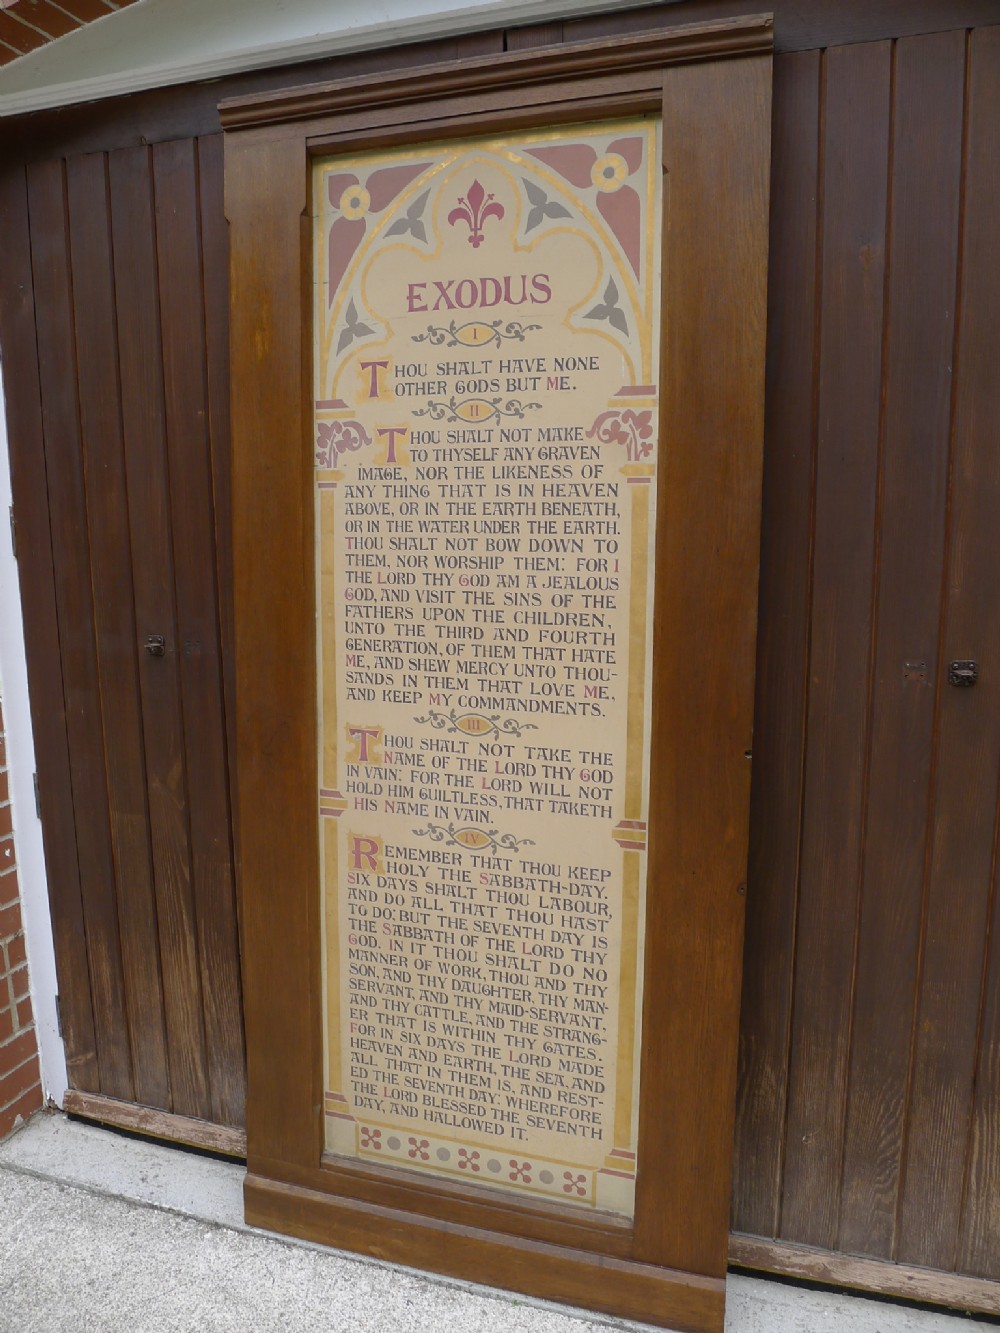 EXODUS
I
THOU SHALT HAVE NONE
OTHER GODS BUT ME.
II
THOU SHALT NOT MAKE
TO THYSELF ANY GRAVEN
IMAGE, NOR THE LIKENESS OF
ANY THING THAT IS IN HEAVEN
ABOVE, OR IN THE EARTH BENEATH,
OR IN THE WATER UNDER THE EARTH.
THOU SHALT NOT BOW DOWN TO
THEM, NOR WORSHIP THEM: FOR I
THE LORD THY GOD AM A JEALOUS
GOD, AND VISIT THE SINS OF THE
FATHERS UPON THE CHILDREN,
UNTO THE THIRD AND FOURTH
GENERATION, OF THEM THAT HATE
ME, AND SHEW MERCY UNTO THOU-
SANDS IN THEM THAT LOVE ME,
AND KEEP MY COMMANDMENTS.
III
THOU SHALT NOT TAKE THE
NAME OF THE LORD THY GOD
IN VAIN: FOR THE LORD WILL NOT
HOLD HIM GUILTLESS, THAT TAKETH
HIS NAME IN VAIN.
IV
REMEMBER THAT THOU KEEP
HOLY THE SABBATH-DAY.
SIX DAYS SHALT THOU LABOUR,
AND DO ALL THAT THOU HAST
TO DO; BUT THE SEVENTH DAY IS
THE SABBATH OF THE LORD THY
GOD. IN IT THOU SHALT DO NO
MANNER OF WORK, THOU AND THY
SON, AND THY DAUGHTER, THY MAN-
SERVANT, AND THY MAID-SERVANT,
AND THY CATTLE, AND THE STRANG-
ER THAT IS WITHIN THY GATES.
FOR IN SIX DAYS THE LORD MADE
HEAVEN AND EARTH, THE SEA, AND
ALL THAT IN THEM IS, AND REST-
ED THE SEVENTH DAY: WHEREFORE
THE LORD BLESSED THE SEVENTH
DAY, AND HALLOWED IT.